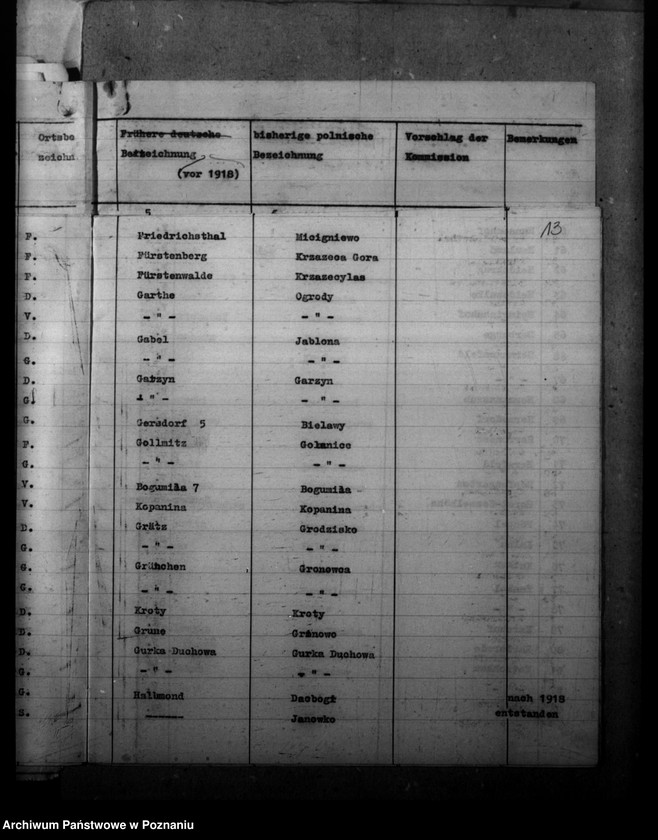 Ortsbe
Frühere deutsche
bisherige polnische
Vorschlag der
Bemerkungen
zeichn
Bezeichnung
Bezeichnung
Kommission
(vor 1918)
13
F. Friedrichsthal Micigniewo
F. Fürstenberg Krzazeca Gora
F. Fürstenwalde Krzazecylas
D. Garthe Ogrody
V. - " - - " -
D. Gabel Jablona
G. - " - - " -
D. Garzyn Garzyn
G. - " - - " -
G. Gersdorf 5 Bielawy
F. Gollmitz Golanice
G. - " - - " -
V. Bogumiła 7 Bogumiła
V. Kopanina Kopanina
D. Grätz Grodzisko
G. - " - - " -
G. Grünchen Gronowca
G. - " - - " -
D. Kroty Kroty
D. Grune Gronowo
D. Gurka Duchowa Gurka Duchowa
G. - " - - " -
G. Halbmond Daobogi nach 1918
S. ------- Janowko entstanden
Archiwum Państwowe w Poznaniu